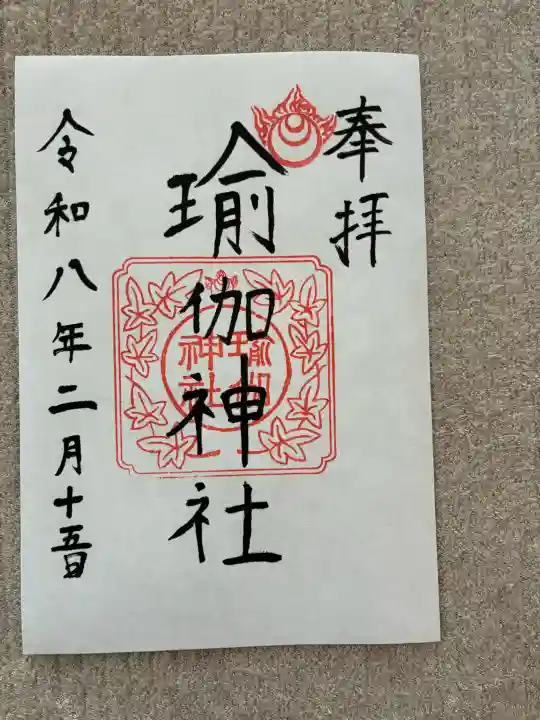 奉拝
瑜伽神社
瑜伽
神社
令和八年二月十五日